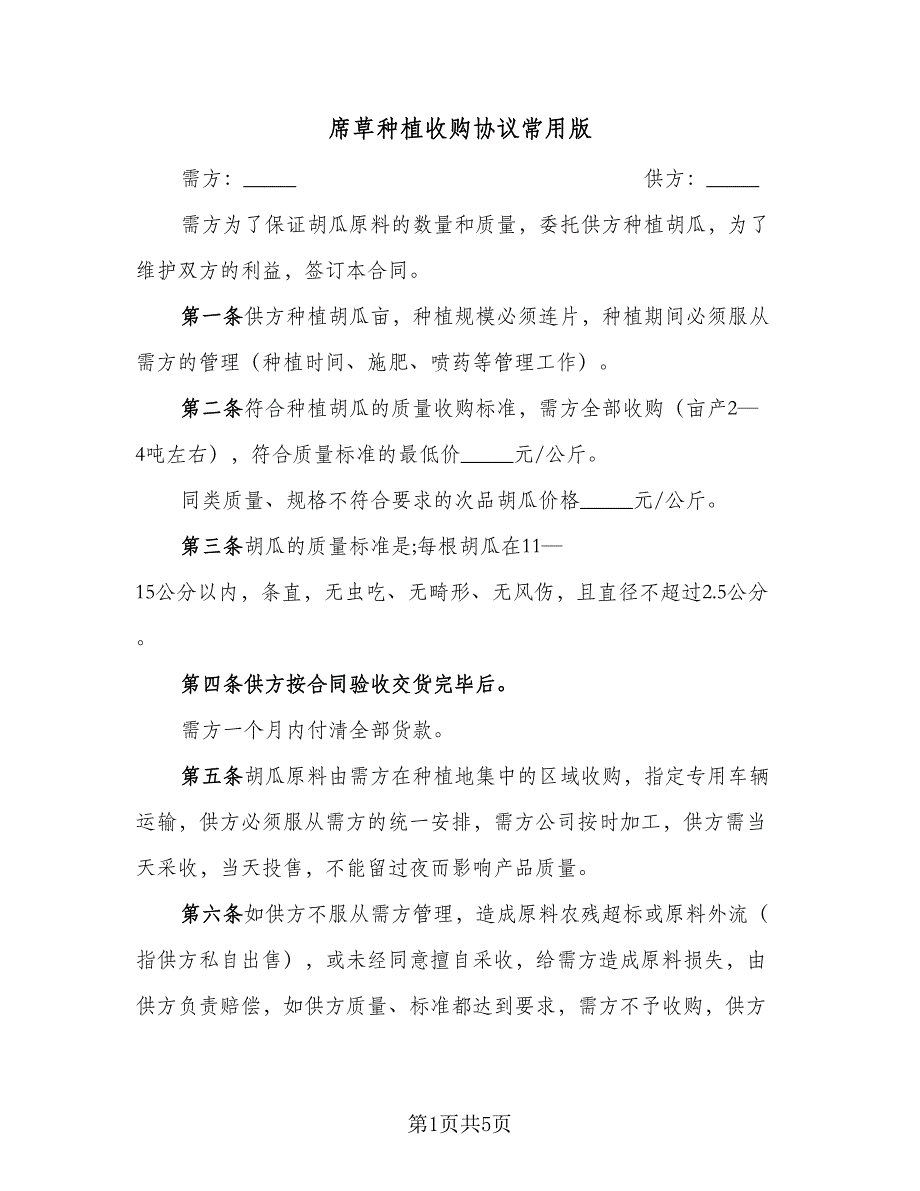 席草种植收购协议常用版
需方：_____ 供方：_____
需方为了保证胡瓜原料的数量和质量，委托供方种植胡瓜，为了
维护双方的利益，签订本合同。
第一条供方种植胡瓜亩，种植规模必须连片，种植期间必须服从
需方的管理（种植时间、施肥、喷药等管理工作）。
第二条符合种植胡瓜的质量收购标准，需方全部收购（亩产2—
4吨左右），符合质量标准的最低价_____元/公斤。
同类质量、规格不符合要求的次品胡瓜价格_____元/公斤。
第三条胡瓜的质量标准是;每根胡瓜在11—
15公分以内，条直，无虫吃、无畸形、无风伤，且直径不超过2.5公分
。
第四条供方按合同验收交货完毕后。
需方一个月内付清全部货款。
第五条胡瓜原料由需方在种植地集中的区域收购，指定专用车辆
运输，供方必须服从需方的统一安排，需方公司按时加工，供方需当
天采收，当天投售，不能留过夜而影响产品质量。
第六条如供方不服从需方管理，造成原料农残超标或原料外流（
指供方私自出售），或未经同意擅自采收，给需方造成原料损失，由
供方负责赔偿，如供方质量、标准都达到要求，需方不予收购，供方
第1页共5页